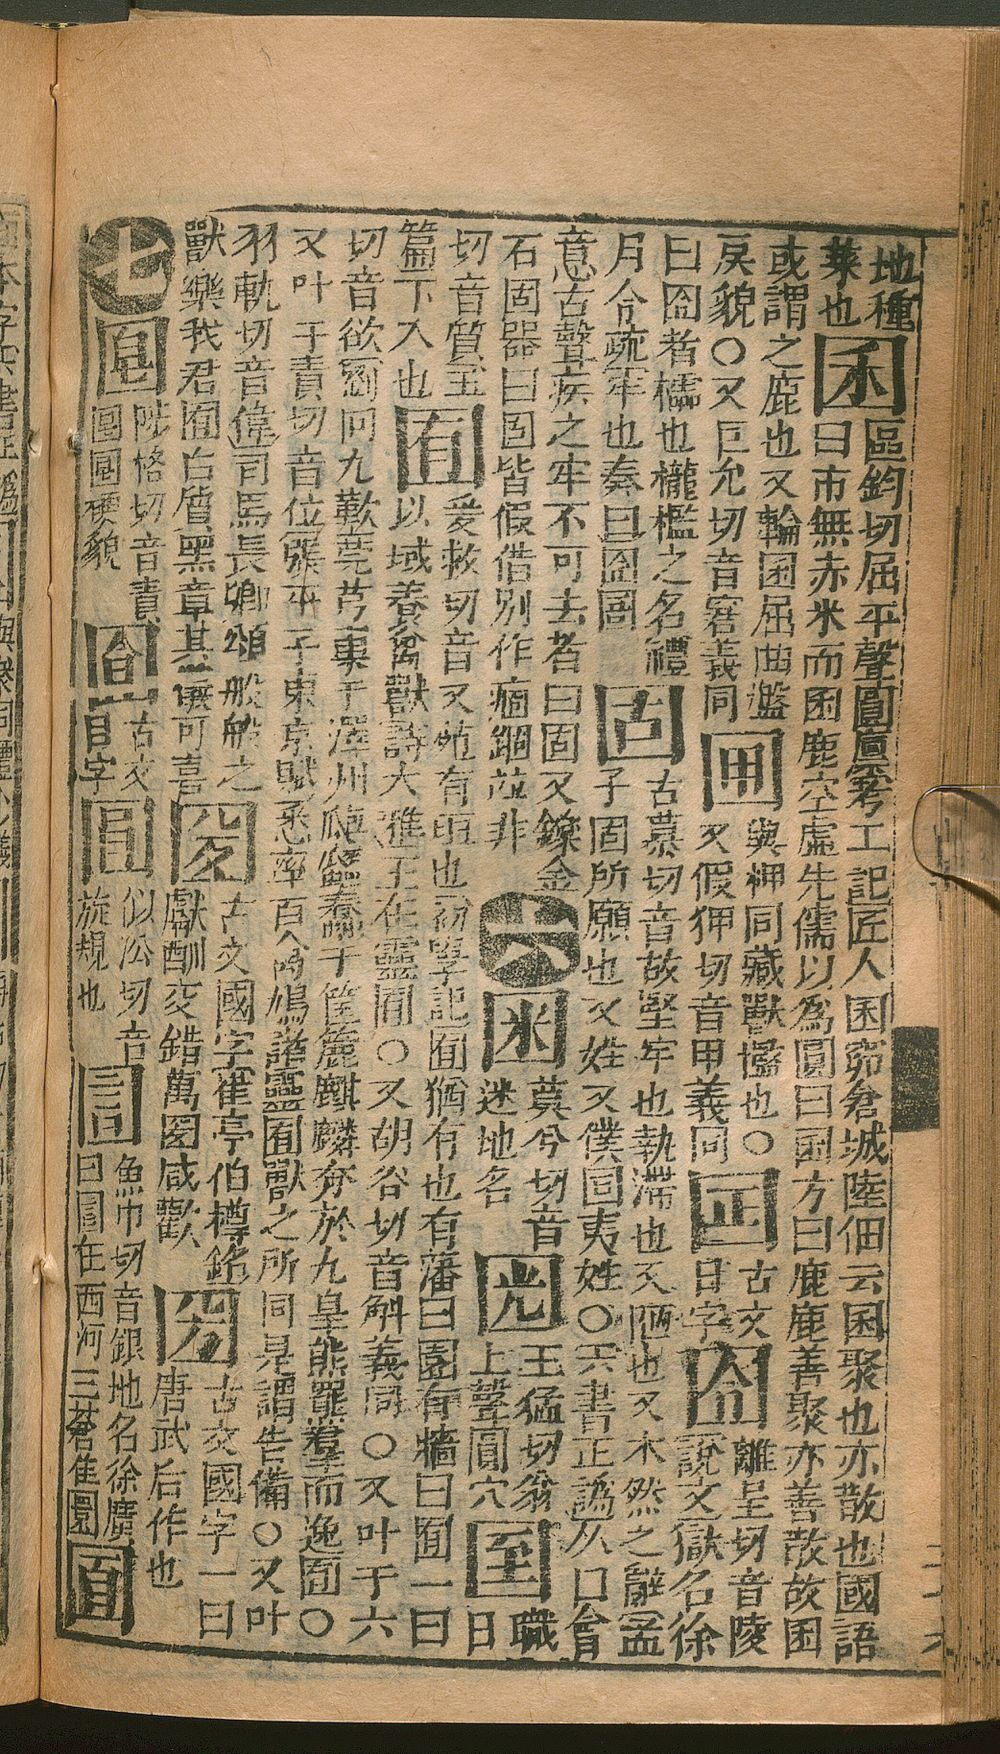 地種
菜也囷區鈞切屈平聲圓廩䆁考工記匠人囷窌倉城陸佃云囷聚也亦散也國語
曰市無赤米而囷鹿空虛先儒以為圓曰囷方曰鹿鹿善聚亦善散故囷
或謂之鹿也又輪囷屈曲盤
戾貌○又巨允切音窘義同𡇼與柙同藏獸檻也○
又假狎切音甲義同囸古文
日字囹離呈切音陵
說文獄名徐
曰囹者櫺也櫳檻之名禮
月令疏牢也秦曰囹圄固古慕切音故堅牢也執滯也又陋也又本然之辭孟
子固所願也又姓又僕固夷姓○六書正譌从口會
意古聲疾之牢不可去者曰固又鑠金
石固器曰固皆假借別作痼錮竝非
六 莫兮切音
迷地名 王猛切
上聲圓穴 職日
切音質𤣥
篇下入也囿爰救切音又苑有垣也初學記囿猶有也有藩曰園有牆曰囿一曰
以域養禽獸詩大雅王在靈囿○又胡谷切音斛義同○又叶于六
切音欲劉向九歎莞芎棄于澤州兮瓟蠡蠹于筐簏麒麟奔於九皐兮熊羆羣而逸囿○
又叶于責切音位張平子東京賦悉率百禽鳩諸靈囿獸之所同是謂告備○又叶
羽軌切音偉司馬長卿頌般般之
獸樂我君囿白質黑章其儀可喜 古文國字崔亭伯樽銘
獻酬交錯萬國咸歡 古文國字一曰
唐武后作也
七 陟格切音責
硬貌 古文
自字 似沿切音
旋規也 魚巾切音銀地名徐廣
曰圁在西河三